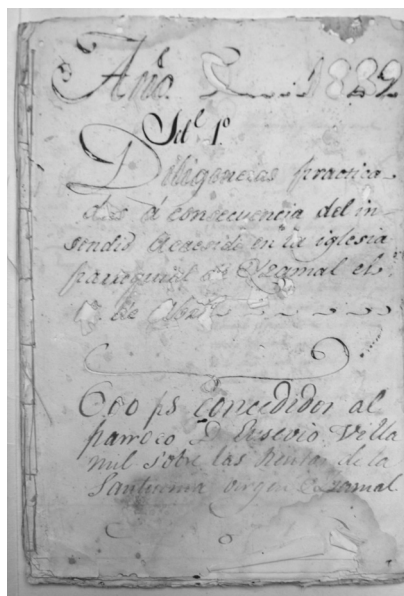 Año. 1829
Diligencias practica-
das á consecuencia del in-
sendio acaecido en la iglesia
parroquial de Yzamal el
de Abril
600 ps concedidos al
parroco D. Eusevio Villa
mil sobre las rentas de la
Santisima virgen Yzamal